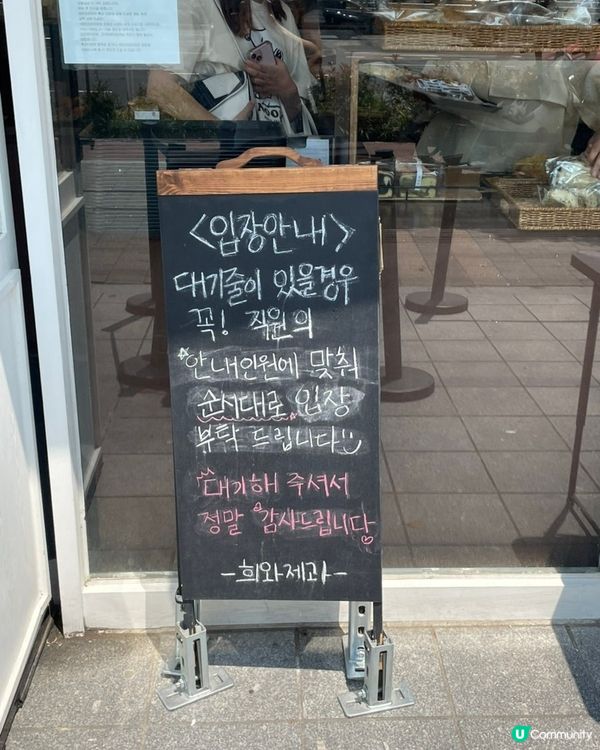 <입장안내>
대기줄이 있을경우
꼭! 직원의
안내인원에 맞춰
순서대로 입장
부탁 드립니다
대기해 주셔서
정말 감사드립니당
-희와제과-
U Community